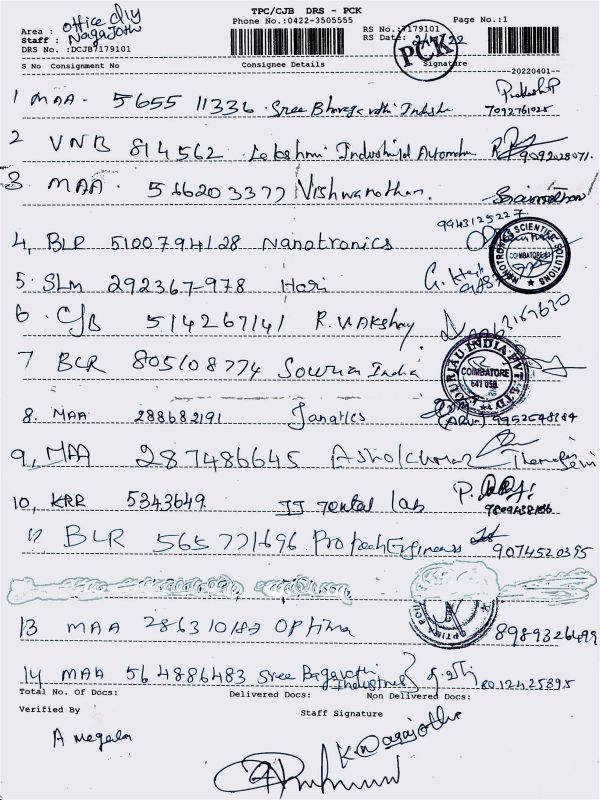 TPC/CJB DRS - PCK
Phone No.:0422-3505555
Page No.:1
Area : office dly
Staff : Nagajothi
DRS No. :DCJB7179101
RS No.:7179101
RS Date:
PCK
S No Consignment No Consignee Details Signature
20220401
1 MAA. 5655 11336 Sree
7092761025
2 VNB 814562 Lakshmi Industrial
3 MAA. 566203377 Vishwanathan.
9943125227
4, BLR 5100794128 Nanotronics
NANOTRONICS SCIENTIFIC SOLUTIONS
COIMBATORE
5. SLM 292367-978 Hari
6. CJB 514267141 R. Vakshay
7 BLR 805108774 Souriau India
SOURIAU INDIA PVT. LTD
COIMBATORE
641 059
8. MAA 288682191 Janatics
9, MAA 287486645 Ashokkumar
10, KRR 5343649 JJ Dental Lab
11 BLR 565 771696 Protech Engineers 9074520395
13 MAA 286310182 Optima 8989326499
14 MAA 564886483 Sree Bagavathi Industries 8012425895
Total No. Of Docs: Delivered Docs: Non Delivered Docs:
Verified By Staff Signature
A megala K. Nagajothi